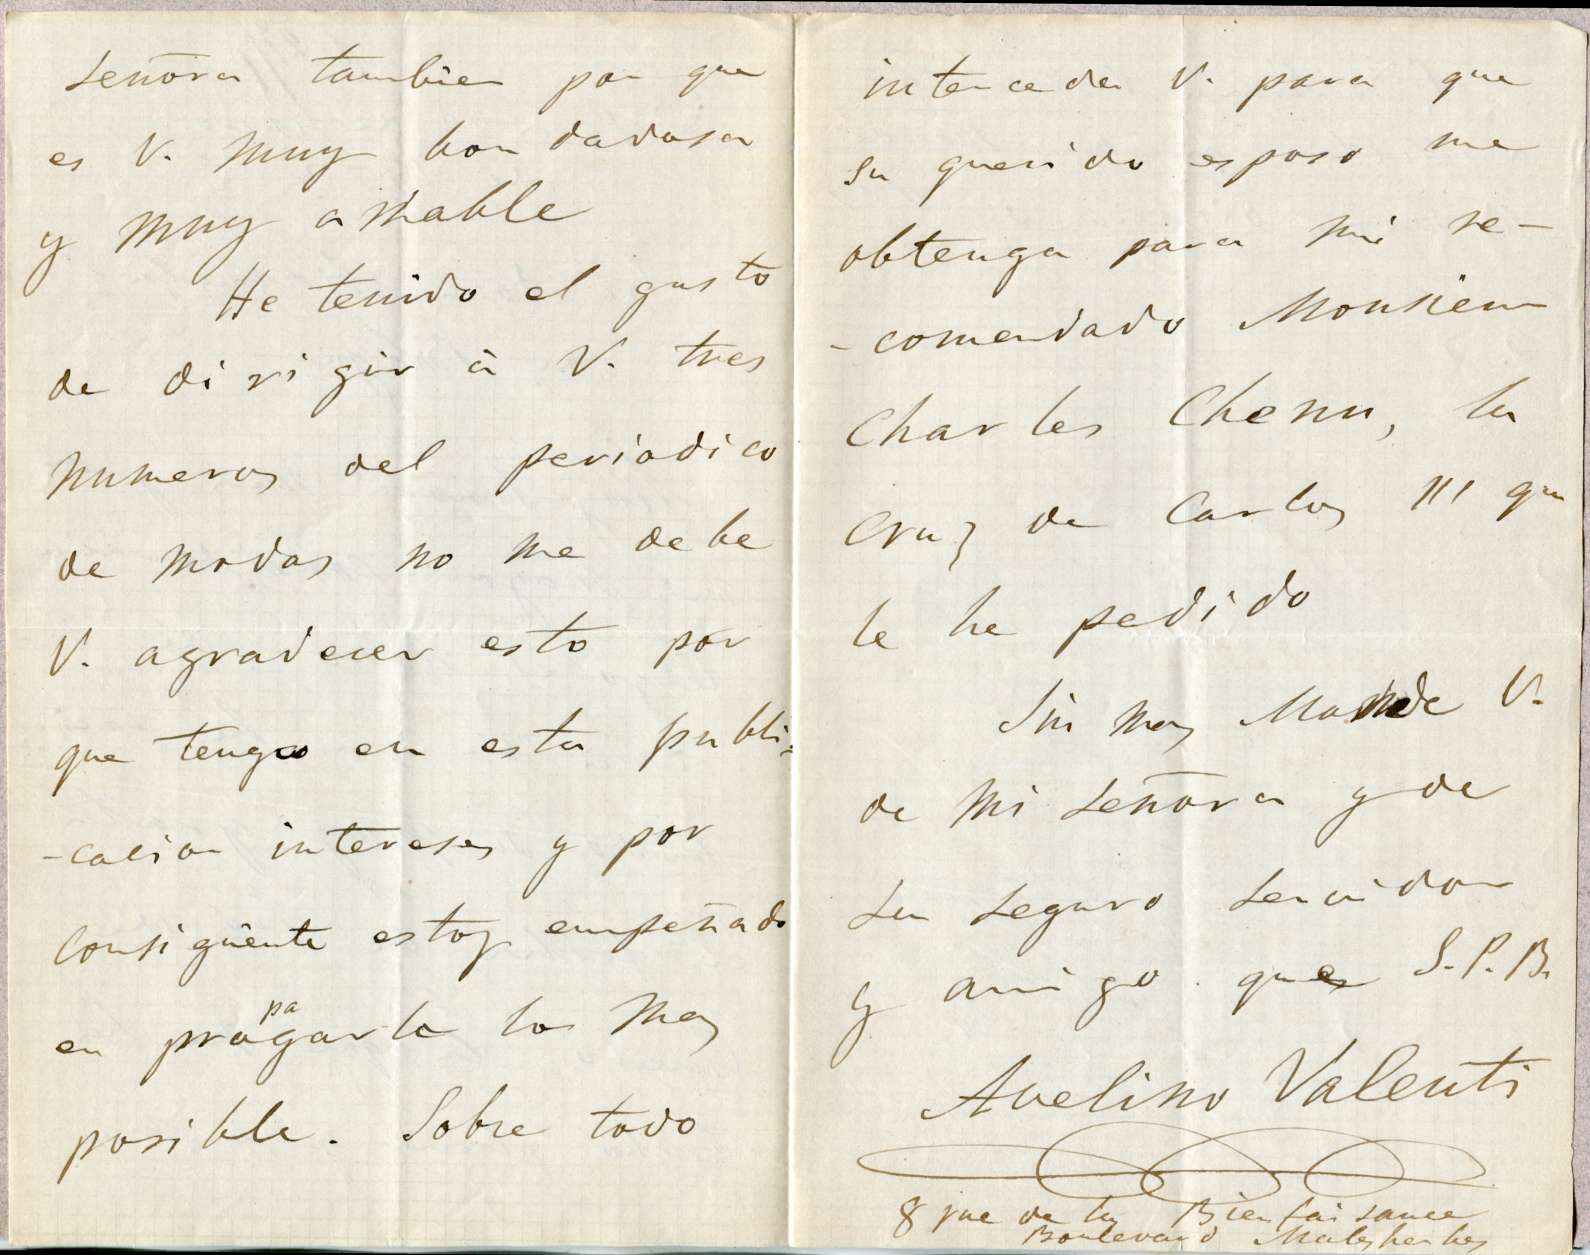 señora tambien por que
es V. muy bondadosa
y muy amable
He tenido el gusto
de dirigir à V. tres
numeros del periodico
de modas no me debe
V. agradecer esto por
que tengo en esta publi-
-cacion intereses y por
consigüente estoy empeñado
en propagarle lo mas
posible. Sobre todo
interceda V. para que
su querido esposo me
obtenga para mi re-
-comendado Monsieur
Charles Chenu, la
Cruz de Carlos III que
le he pedido
Sin mas Mande V.
de mi señora y de
su seguro servidor
y amigo que S.P.B.
Avelino Valenti
8 rue de la Bienfaisance
Boulevard Malesherbes